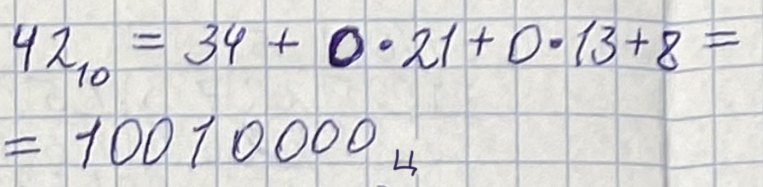 42₁₀ = 34 + 0·21 + 0·13 + 8 =
= 10010000ц